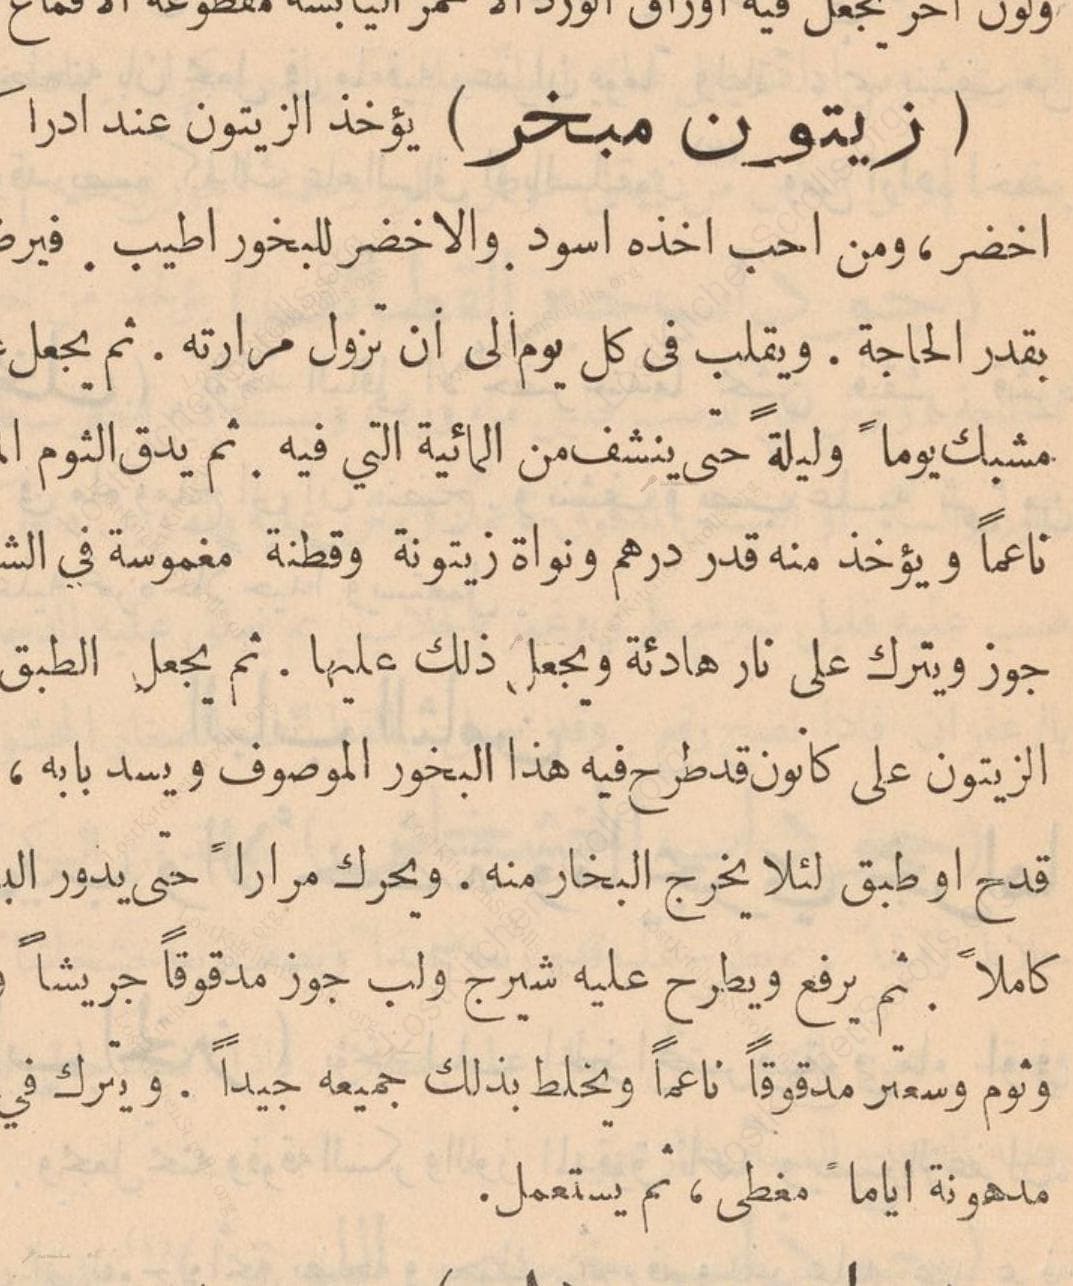 ولون آخر يجعل فيه اوراق الورد الاحمر اليابسة مقطوعة الاقماع
( زيتون مبخر ) يؤخذ الزيتون عند ادرا
اخضر ، ومن احب اخذه اسود . والاخضر للبخور اطيب . فيرض
بقدر الحاجة . ويقلب في كل يوم الى أن تزول مرارته . ثم يجعل
مشبك يوماً وليلةً حتى ينشف من المائية التي فيه . ثم يدق الثوم
ناعماً ويؤخذ منه قدر درهم ونواة زيتونة وقطنة مغموسة في
جوز ويترك على نار هادئة ويجعل ذلك عليها . ثم يجعل الطبق
الزيتون على كانون قد طرح فيه هذا البخور الموصوف ويسد بابه ،
قدح او طبق لئلا يخرج البخار منه . ويحرك مراراً حتى يدور
كاملاً . ثم يرفع ويطرح عليه شيرج ولب جوز مدقوقاً جريشاً
وثوم وسعتر مدقوقاً ناعماً ويخلط بذلك جميعه جيداً . ويترك في
مدهونة اياماً مغطى ، ثم يستعمل .